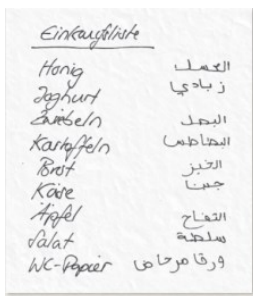 Einkaufsliste
Honig العسل
Joghurt زبادي
Zwiebeln البصل
Kartoffeln البطاطس
Brot الخبز
Käse جبنا
Äpfel التفاح
Salat سلطة
WC-Papier ورقا مرحاض